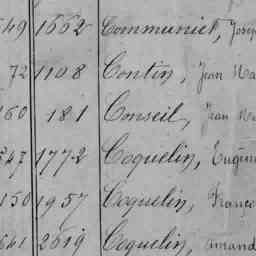 549 1662 Communiet, Josep
72 1108 Contin, Jean Ma
160 181 Conseil, Jean Ma
547 1772 Coquelin, Eugène
150 1957 Coquelin, Franço
641 2619 Coquelin, Amand